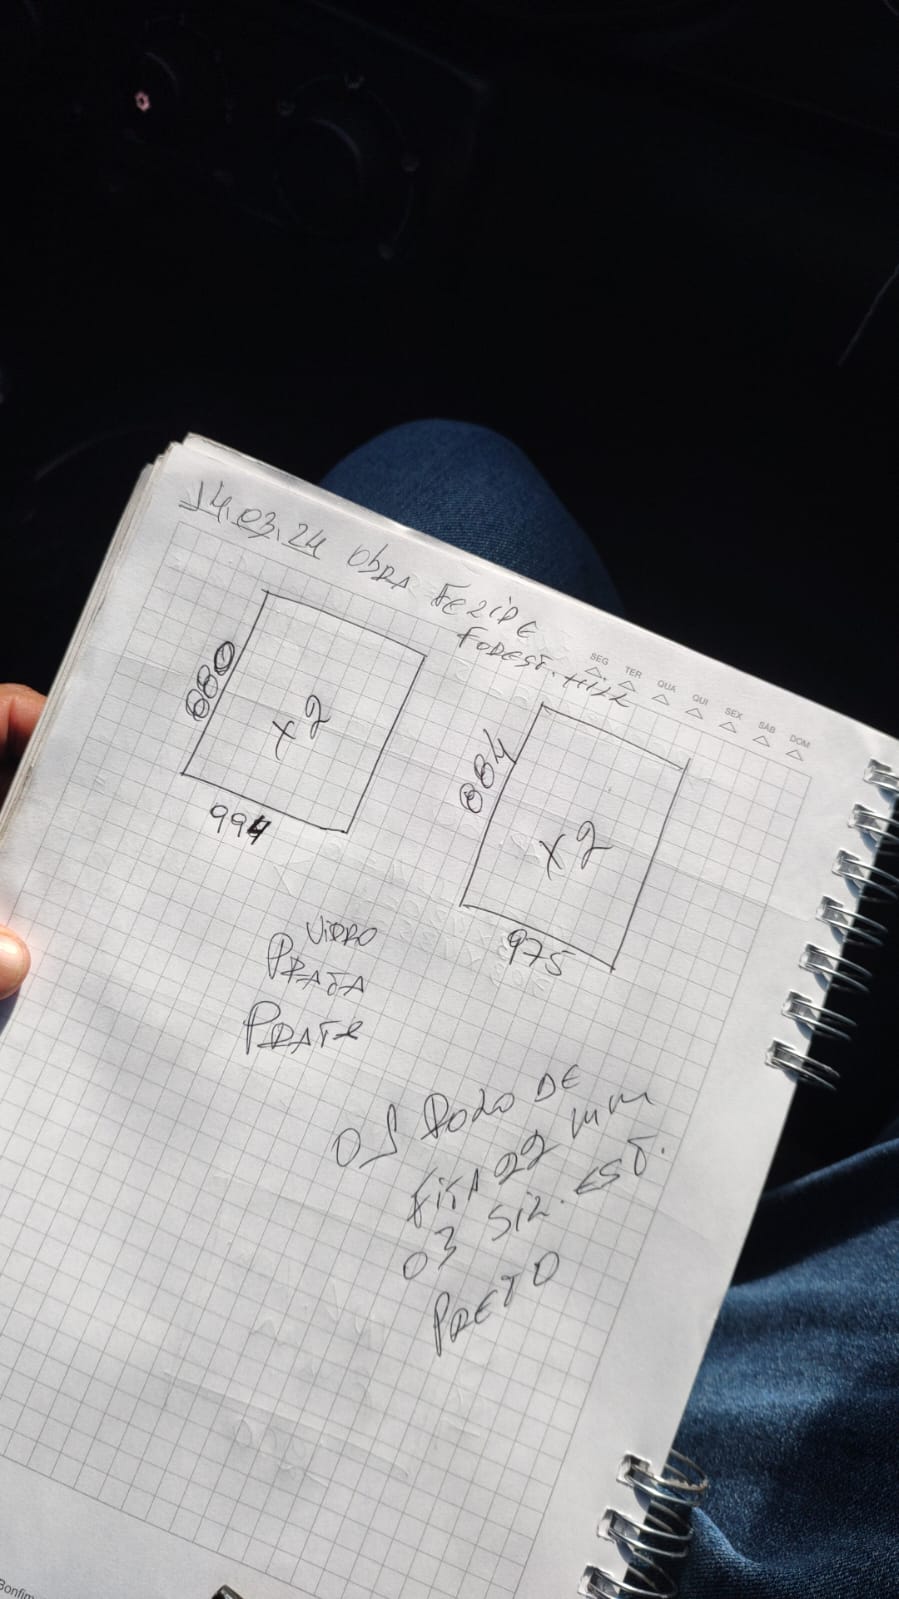 14.03.24 Obra Felipe
Forest. Hill
SEG TER QUA QUI SEX SÁB DOM
880
x2
994
884
x2
975
Vidro
Prata
Prata
01 Rolo de
Fita 22 mm
03 Sil. Est.
Preto
Bonfim